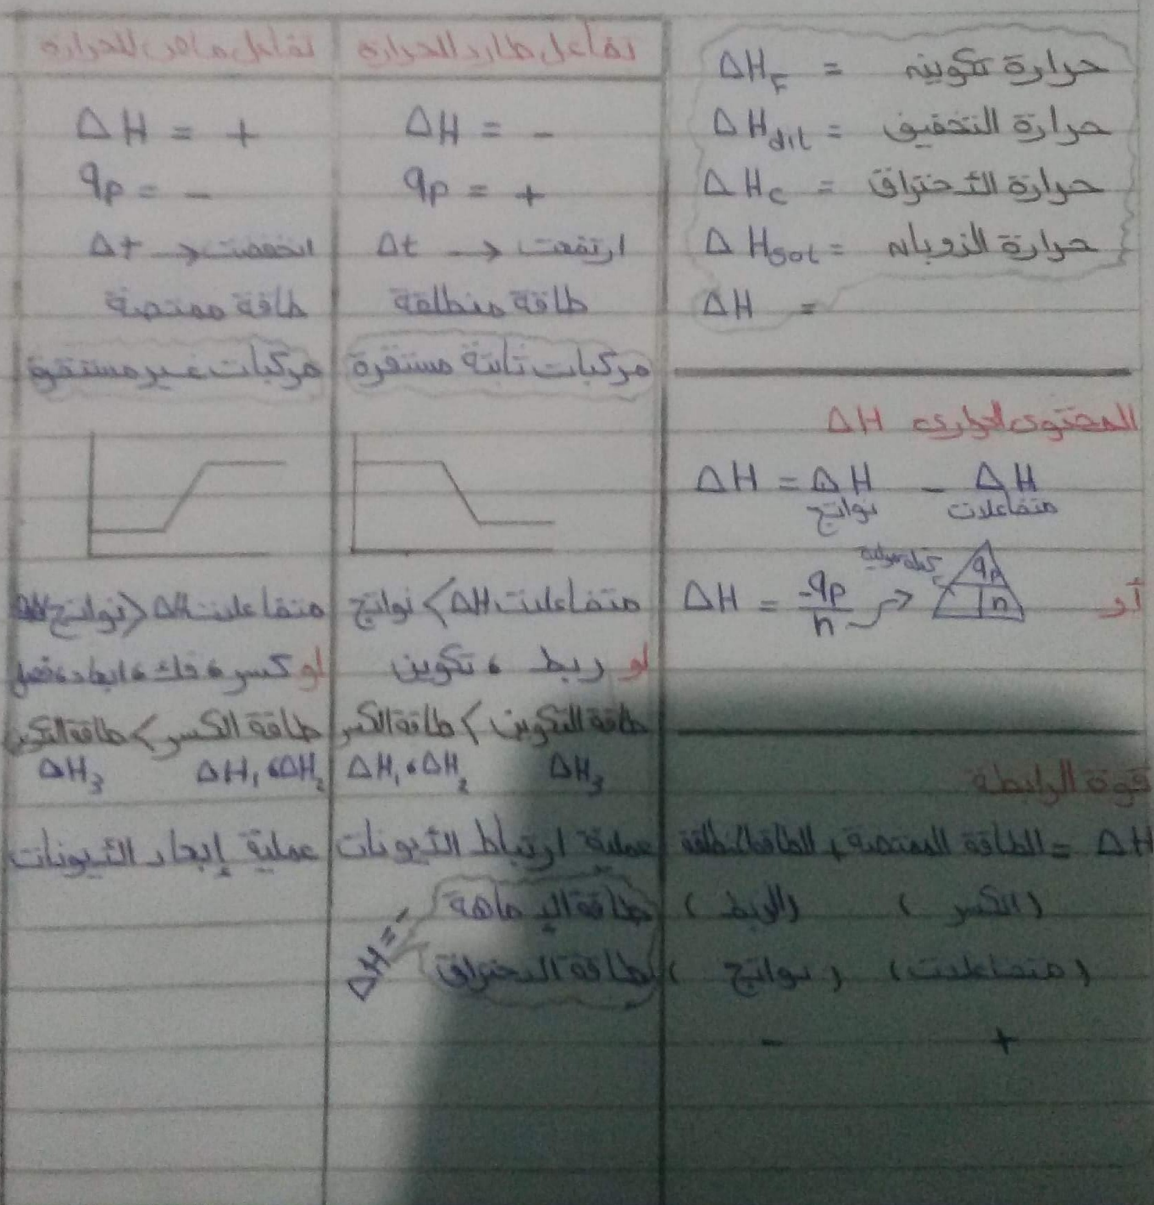 حرارة تكوين = ΔHF
حرارة التخفيف = ΔHdil
حرارة الاحتراق = ΔHc
حرارة الذوبان = ΔHsol
ΔH =
المحتوى الحراري ΔH
ΔH = ΔH نواتج - ΔH متفاعلات
أو ΔH = -qp / n
qp
n
قوة الرابطة
ΔH = الطاقة الممتصة + الطاقة المنطلقة
(الكسر) (الربط)
(متفاعلات) (نواتج)
+ -
تفاعل طارد للحرارة
ΔH = -
qp = +
Δt → ارتفعت
طاقة منطلقة
مركبات ثابتة مستقرة
متفاعلات ΔH > نواتج
لو ربط ، تكوين
طاقة التكوين > طاقة الكسر
ΔH3 ΔH1 ، ΔH2
عملية ارتباط الأيونات
طاقة الإماهة
طاقة الاحتراق
ΔH = -
تفاعل ماص للحرارة
ΔH = +
qp = -
Δt → انخفضت
طاقة ممتصة
مركبات غير مستقرة
متفاعلات ΔH < نواتج ΔH
لو كسر ، فك ، ابعاد ، فصل
طاقة الكسر > طاقة التكوين
ΔH1 ، ΔH2 ΔH3
عملية إبعاد الأيونات